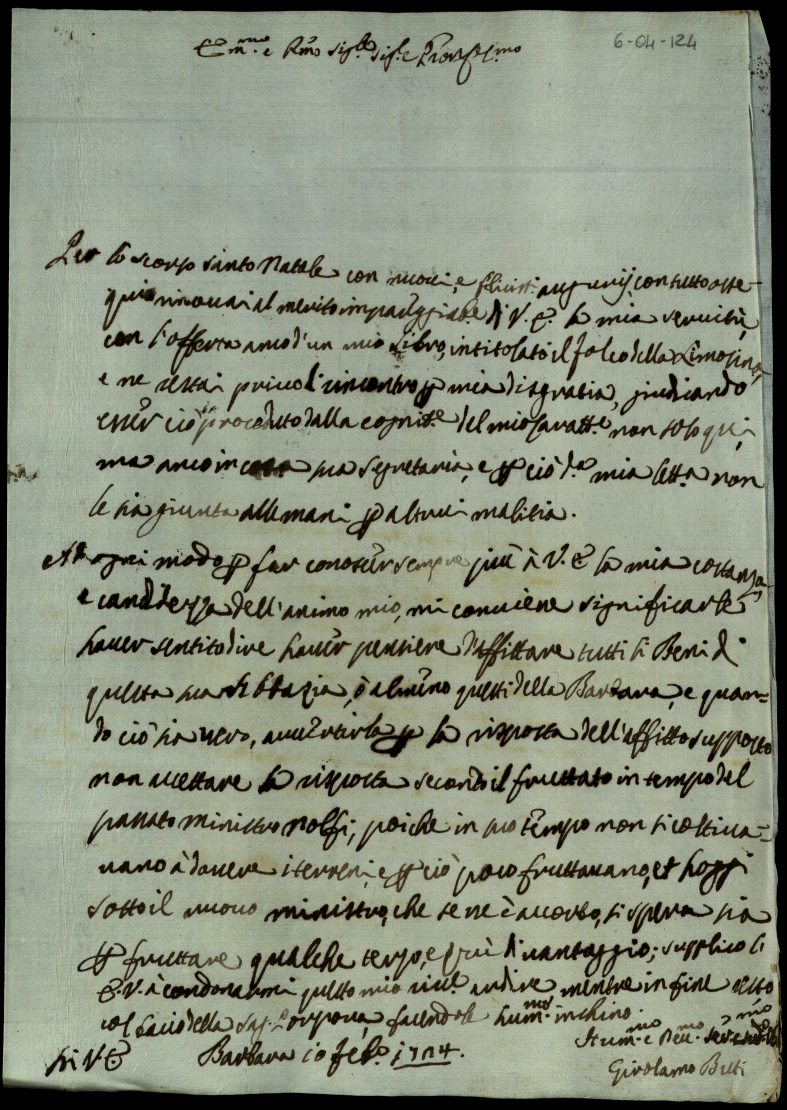 6-04-124
Em.mo e Rmo Sig.re Sig.re e Pron Col.mo
Per lo scorso Santo Natale con nuovi, e felicissi augurij con tutto osse-
quio rinovai al merito impareggiabe di V. E. la mia servitù,
con l'offerta anco d'un mio Libro, intitolato il Falco della Limosina,
e ne restai privo d'incontro p mia disgratia, giudicando
esser ciò proceduto dalla cognite del mio Caratte non solo qui,
ma anco in cotesta sua Segretaria, e p ciò da mia letta non
le sia giunta alle mani p altrui malitia.
Ad ogni modo p far conoscer sempre più à V. E. la mia costanza,
e candidezza dell'animo mio, mi conviene significarle
haver sentito dire haver pensiere d'affittare tutti li Beni di
questa sua Abbazia, ò almeno questi della Barbara, e quan=
do ciò sia vero, avvertirla p la risposta dell'affitto supposto
non accettare la risposta secondo il fruttato in tempo del
passato ministro Nolfi, poiche in suo tempo non si coltiva=
vano à dovere i terreni, e p ciò poco fruttavano, et hoggi
sotto il nuovo ministro, che se ne è accorto, si spera sia
p fruttare qualche terzo, e più di vantaggio; supplico l'
E. V. à condonarmi questo mio ardire mentre in fine resto
col bacio della Sag. Porpora, facendole hum.mo inchino.
Di V. E. Barbara 10 Feb.o 1724.
Hum.mo e Rev.mo Ser.e
Girolamo Buti